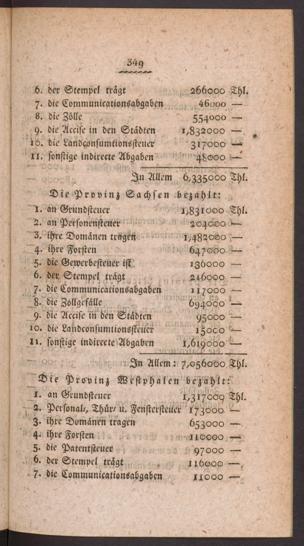 349
6. der Stempel trägt 266000 Thl.
7. die Communicationsabgaben 46000 —
8. die Zölle 554000 —
9. die Accise in den Städten 1,832000 —
10. die Landconsumtionssteuer 317000 —
11. sonstige indirecte Abgaben 48000 —
In Allem 6,335000 Thl.
Die Provinz Sachsen bezahlt:
1. an Grundsteuer 1,831000 Thl.
2. an Personensteuer 204000 —
3. ihre Domänen tragen 1,482000 —
4. ihre Forsten 647000 —
5. die Gewerbesteuer ist 136000 —
6. der Stempel trägt 216000 —
7. die Communicationsabgaben 117000 —
8. die Zollgefälle 694000 —
9. die Accise in den Städten 95000 —
10. die Landconsumtionssteuer 15000 —
11. sonstige indirecte Abgaben 1,619000 —
In Allem: 7,056000 Thl.
Die Provinz Westphalen bezahlt:
1. an Grundsteuer 1,317000 Thl.
2. Personal-, Thür u. Fenstersteuer 173000 —
3. ihre Domänen tragen 653000 —
4. ihre Forsten 110000 —
5. die Patentsteuer 97000 —
6. der Stempel trägt 116000 —
7. die Communicationsabgaben 11000 —